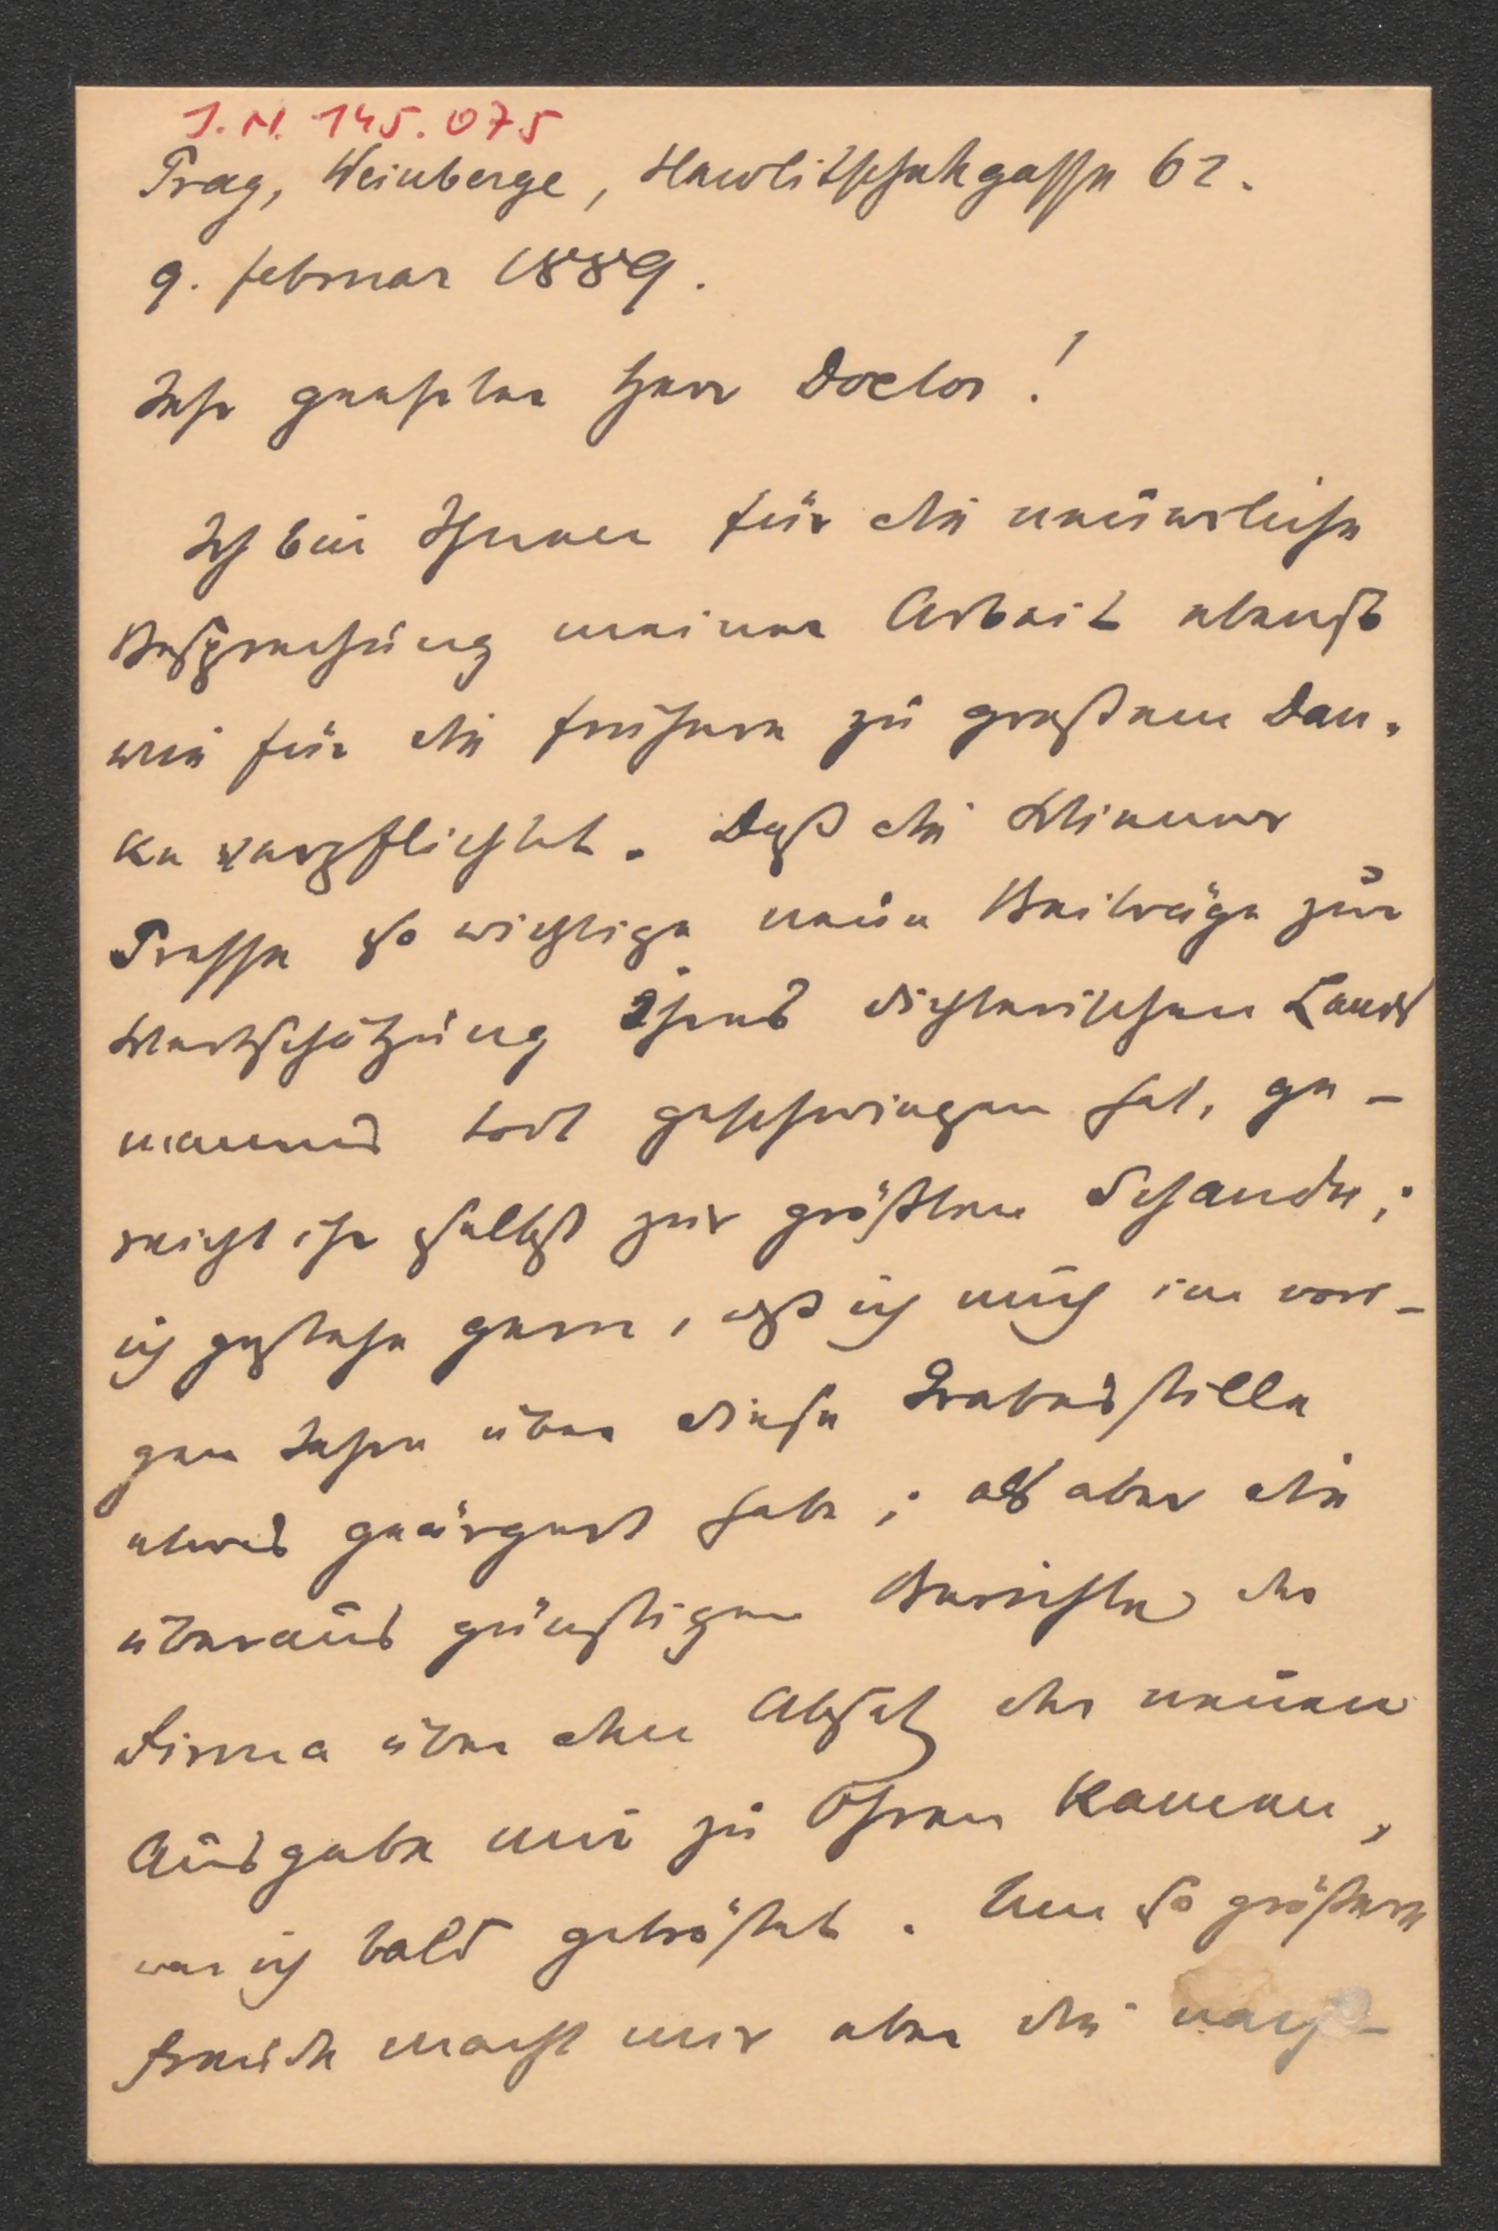 I.N. 145.075
Prag, Weinberge, Hawlitschekgasse 62.
9. Februar 1889.
Sehr geehrter Herr Doctor!
Ich bin Ihnen für die neuerliche
Besprechung meiner Arbeit ebenso
wie für die frühere zu großem Dan-
ke verpflichtet. Daß die Wiener
Presse so wichtige neue Beiträge zur
Wertschätzung Ihres dichterischen Lands
manns todt geschwiegen hat, ge-
reicht ihr selbst zur größten Schande;
ich gestehe gern, daß ich mich im vori-
gen Jahre über diese Grabesstille
etwas geärgert habe; als aber die
überaus günstigen Berichte der
Firma über den Absatz der neuen
Ausgabe mir zu Ohren kamen,
war ich bald getröstet. Um so größere
Freude macht mir aber die nach-